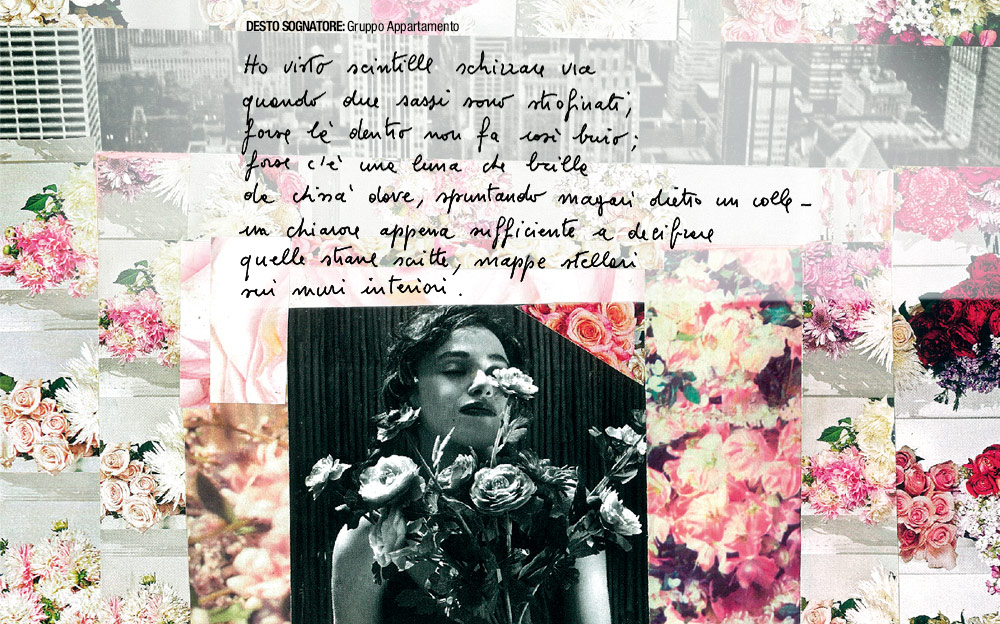 DESTO SOGNATORE: Gruppo Appartamento
Ho visto scintille schizzare via
quando due sassi sono strofinati;
forse lè dentro non fa così buio;
forse c'è una luna che brilla
da chissà dove, spuntando magari dietro un colle -
un chiarore appena sufficiente a decifrare
quelle strane scritte, mappe stellari
sui muri interiori.